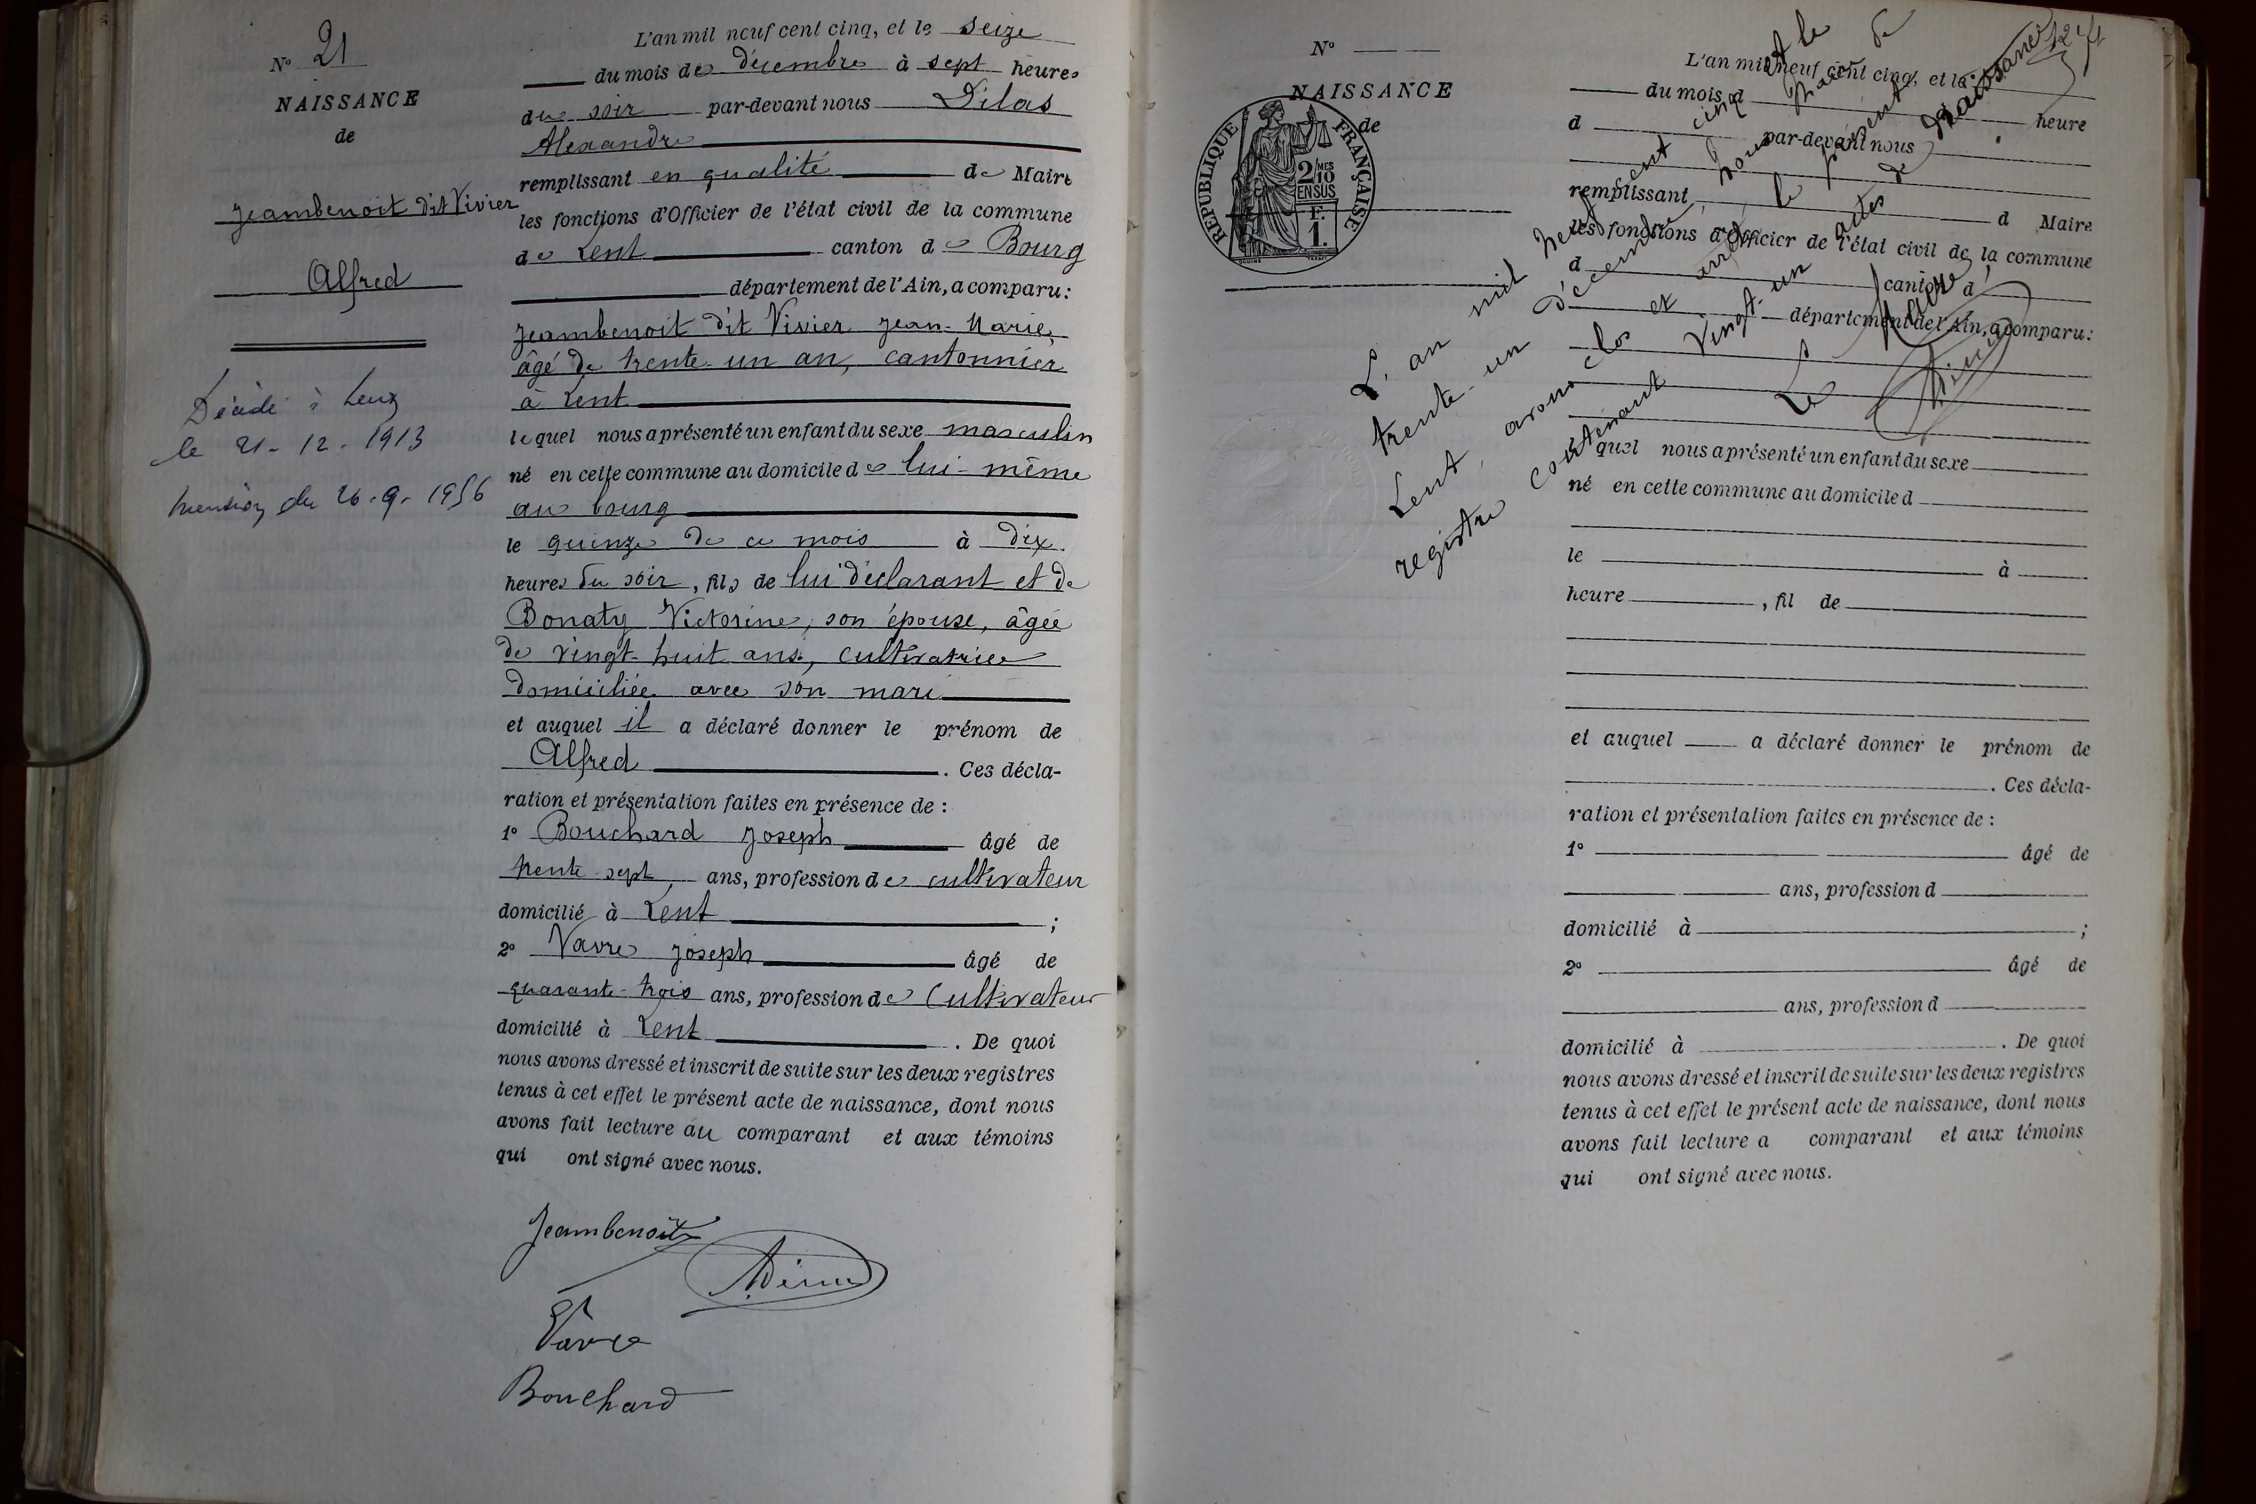 N° 21
NAISSANCE
de
Jeambenoit dit Vivier
Alfred
Décédé à Lent
le 21-12-1913
mention du 26-9-1956
L'an mil neuf cent cinq, et le seize
du mois de décembre à sept heures
du soir par-devant nous Dilas
Alexandre
remplissant en qualité de Maire
les fonctions d'Officier de l'état civil de la commune
de Lent canton de Bourg
département de l'Ain, a comparu :
Jeambenoit dit Vivier Jean-Marie,
âgé de trente-un an, cantonnier
à Lent
lequel nous a présenté un enfant du sexe masculin
né en cette commune au domicile de lui-même
au bourg
le quinze de ce mois à dix
heures du soir, fils de lui déclarant et de
Bonaty Victorine, son épouse, âgée
de vingt-huit ans, cultivatrice
domiciliée avec son mari
et auquel il a déclaré donner le prénom de
Alfred. Ces décla-
ration et présentation faites en présence de :
1° Bouchard Joseph âgé de
trente-sept ans, profession de cultivateur
domicilié à Lent ;
2° Vavre Joseph âgé de
quarante-trois ans, profession de Cultivateur
domicilié à Lent. De quoi
nous avons dressé et inscrit de suite sur les deux registres
tenus à cet effet le présent acte de naissance, dont nous
avons fait lecture au comparant et aux témoins
qui ont signé avec nous.
Jeambenoit
Vavre
Bouchard
N°
NAISSANCE
de
REPUBLIQUE FRANÇAISE
2/10 MES
EN SUS
F.
1.
L'an mil neuf cent cinq, et le
du mois d
d heure
par-devant nous
remplissant d Maire
les fonctions d'Officier de l'état civil de la commune
d canton d
département de l'Ain, a comparu :
quel nous a présenté un enfant du sexe
né en cette commune au domicile d
le à
heure , fil de
et auquel a déclaré donner le prénom de
. Ces décla-
ration et présentation faites en présence de :
1° âgé de
ans, profession d
domicilié à ;
2° âgé de
ans, profession d
domicilié à . De quoi
nous avons dressé et inscrit de suite sur les deux registres
tenus à cet effet le présent acte de naissance, dont nous
avons fait lecture a comparant et aux témoins
qui ont signé avec nous.
L'an mil neuf cent cinq et le
trente-un décembre, nous Maire de
Lent, avons clos et arrêté le présent
registre contenant vingt-un actes de naissance
Le Maire